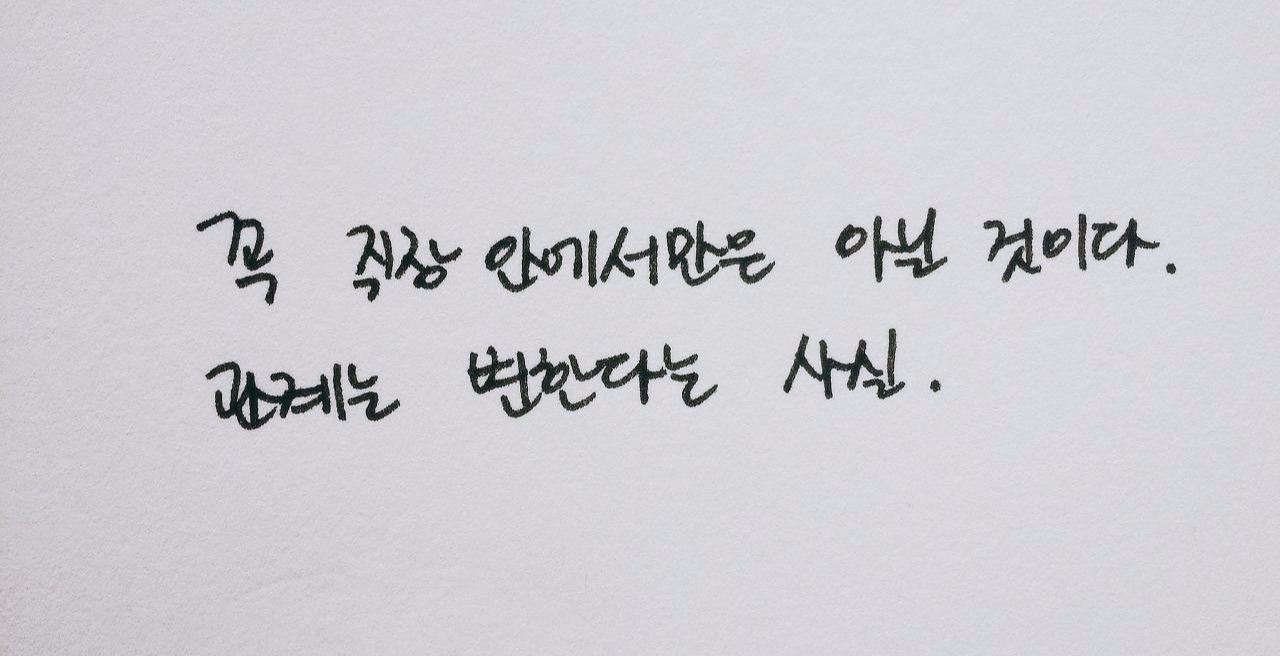 꼭 직장 안에서만은 아닐 것이다.
관계는 변한다는 사실.